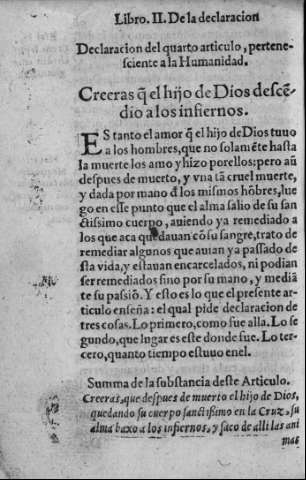 Libro. II. De la declaracion
Declaracion del quarto articulo, pertene-
sciente a la Humanidad.
Creeras q̃ el hijo de Dios descẽ
dio a los infiernos.
ES tanto el amor q̃ el hijo de Dios tuuo
a los hombres, que no solamẽte hasta
la muerte los amo y hizo por ellos: pero aũ
despues de muerto, y vna tã cruel muerte,
y dada por mano đ los mismos hõbres, lue
go en esse punto que el alma salio de su san
ctissimo cuerpo, auiendo ya remediado a
los que aca quedauan cõ su sangre, trato de
remediar algunos que auian ya passado de
sta vida, y estauan encarcelados, ni podian
ser remediados sino por su mano, y mediã
te su passiõ. Y esto es lo que el presente ar-
ticulo enseña: el qual pide declaracion de
tres cosas. Lo primero, como fue alla. Lo se
gundo, que lugar es este donde fue. Lo ter-
cero, quanto tiempo estuuo en el.
Summa de la substancia deste Articulo.
Creeras, que despues de muerto el hijo de Dios,
quedando su cuerpo sanctissimo en la Cruz, su
alma baxo a los infiernos, y saco de alli las ani
mas